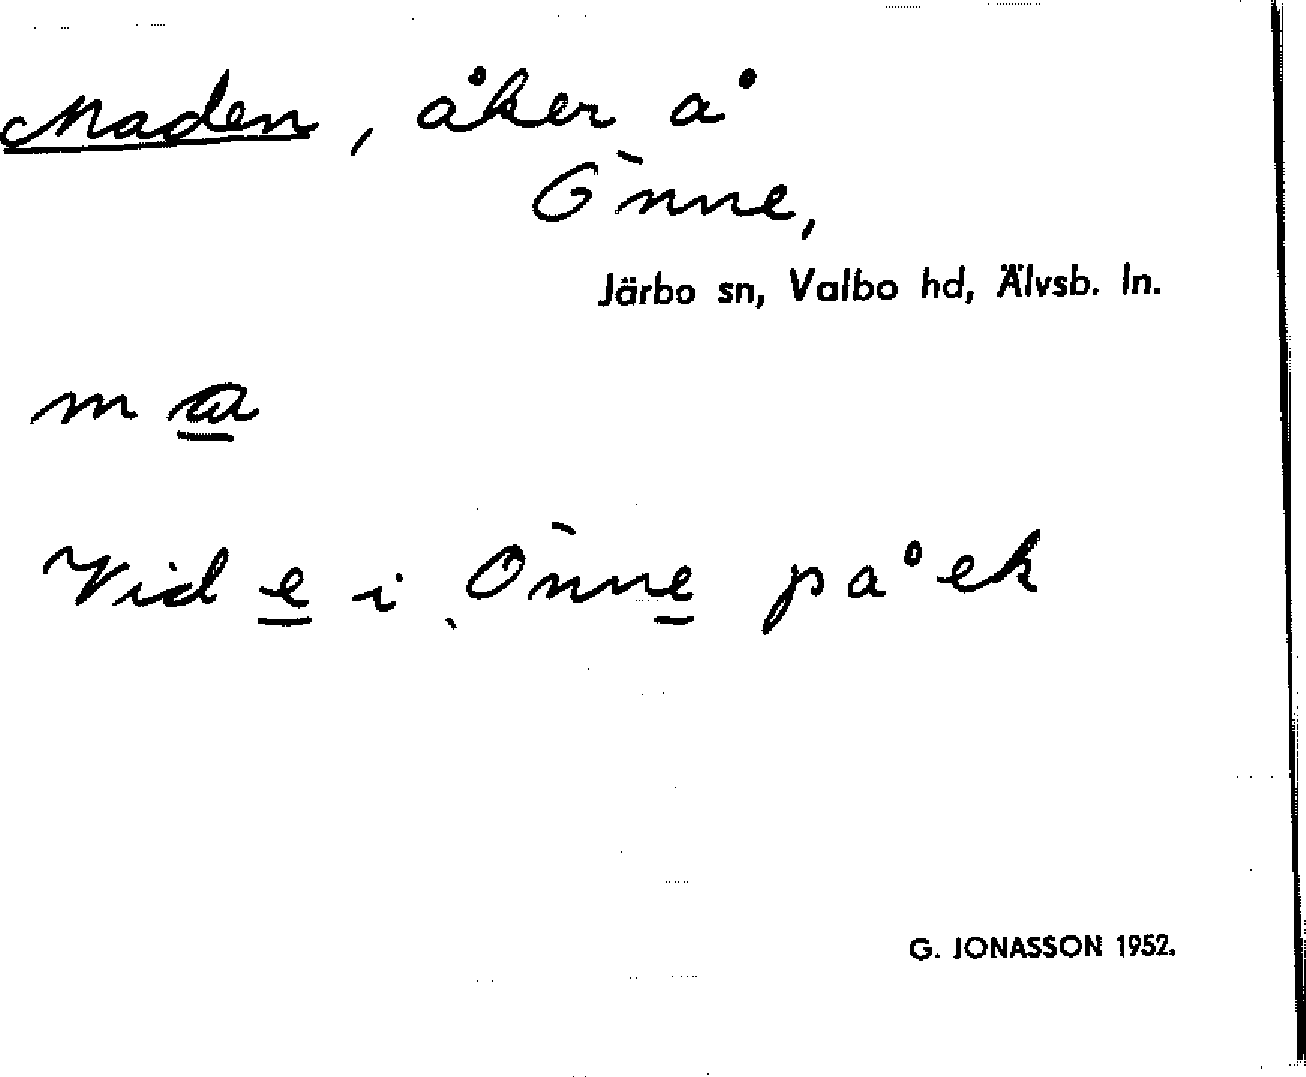 Maden, åker å
Önne,
Järbo sn, Valbo hd, Älvsb. ln.
ma
Vid e i Önne på ek
G. JONASSON 1952.